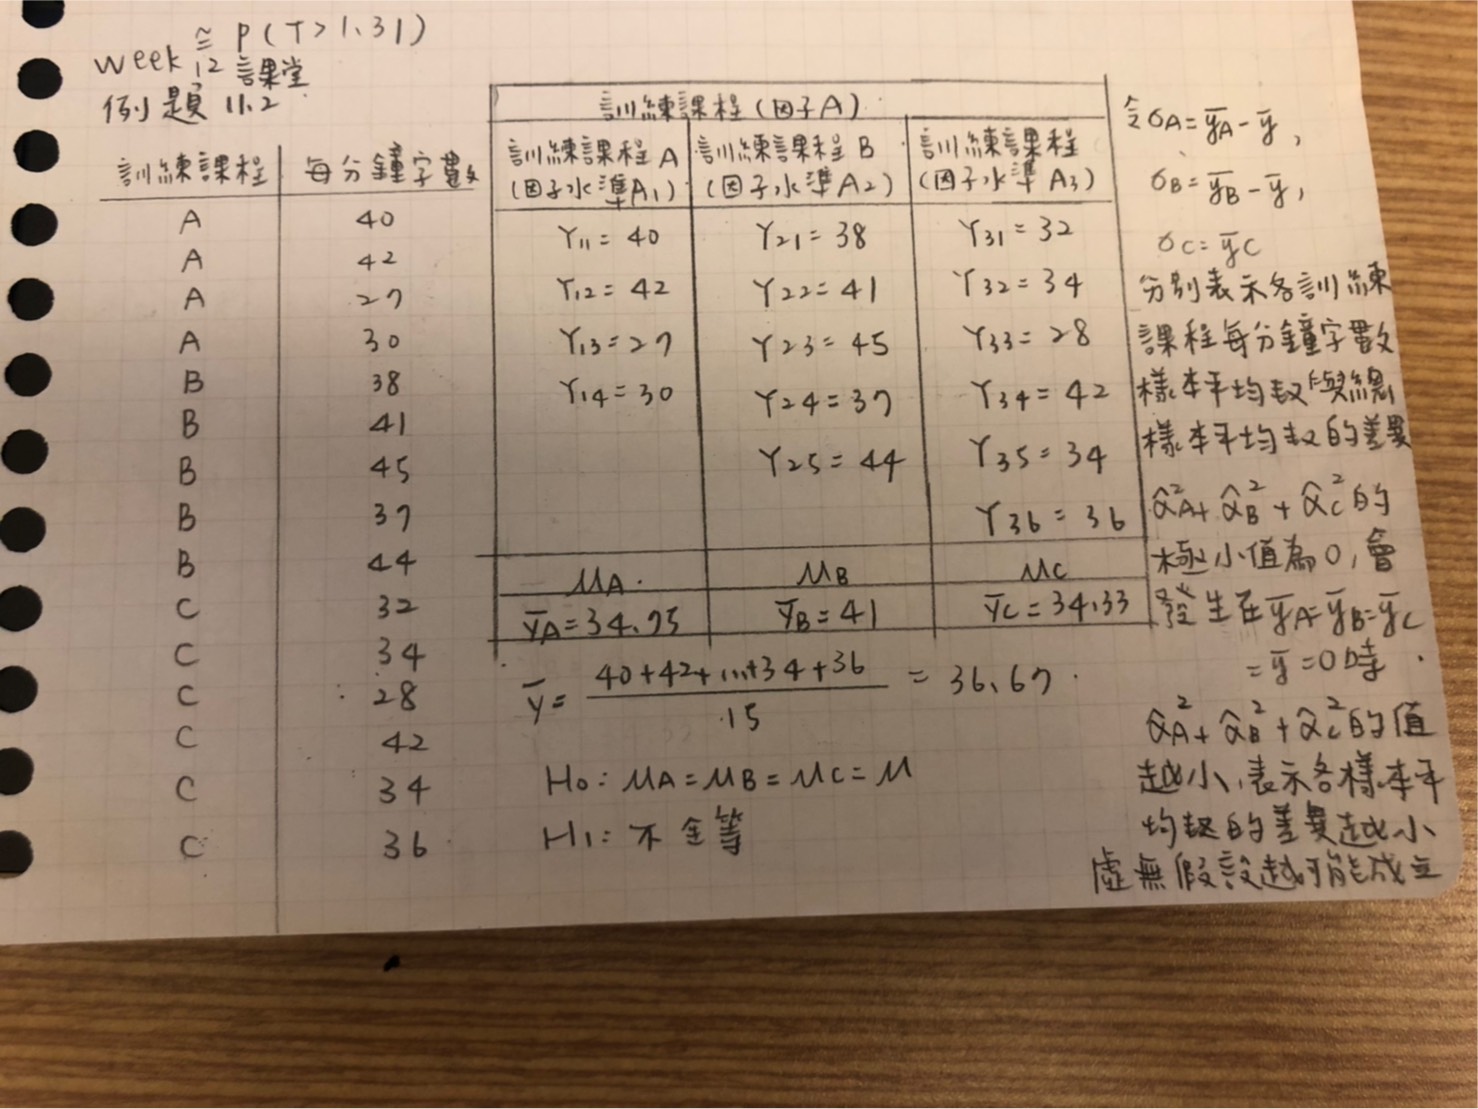 ≅ P(T>1.31)
week 12 課堂
例題 11.2
訓練課程 每分鐘字數
A 40
A 42
A 27
A 30
B 38
B 41
B 45
B 37
B 44
C 32
C 34
C 28
C 42
C 34
C 36
訓練課程(因子A)
訓練課程A 訓練課程B 訓練課程
(因子水準A1) (因子水準A2) (因子水準A3)
Y11=40 Y21=38 Y31=32
Y12=42 Y22=41 Y32=34
Y13=27 Y23=45 Y33=28
Y14=30 Y24=37 Y34=42
Y25=44 Y35=34
Y36=36
μA μB μC
ȳA=34.75 ȳB=41 ȳC=34.33
ȳ= 40+42+...+34+36 / 15 = 36.67
H0: μA=μB=μC=μ
H1: 不全等
令σA=ȳA-ȳ,
σB=ȳB-ȳ,
σC=ȳC
分別表示各訓練
課程每分鐘字數
樣本平均數與總
樣本平均數的差異
α̂²A+α̂²B+α̂²C的
極小值為0,會
發生在ȳA=ȳB=ȳC
=ȳ=0時
α̂²A+α̂²B+α̂²C的值
越小,表示各樣本平
均數的差異越小
虛無假設越可能成立